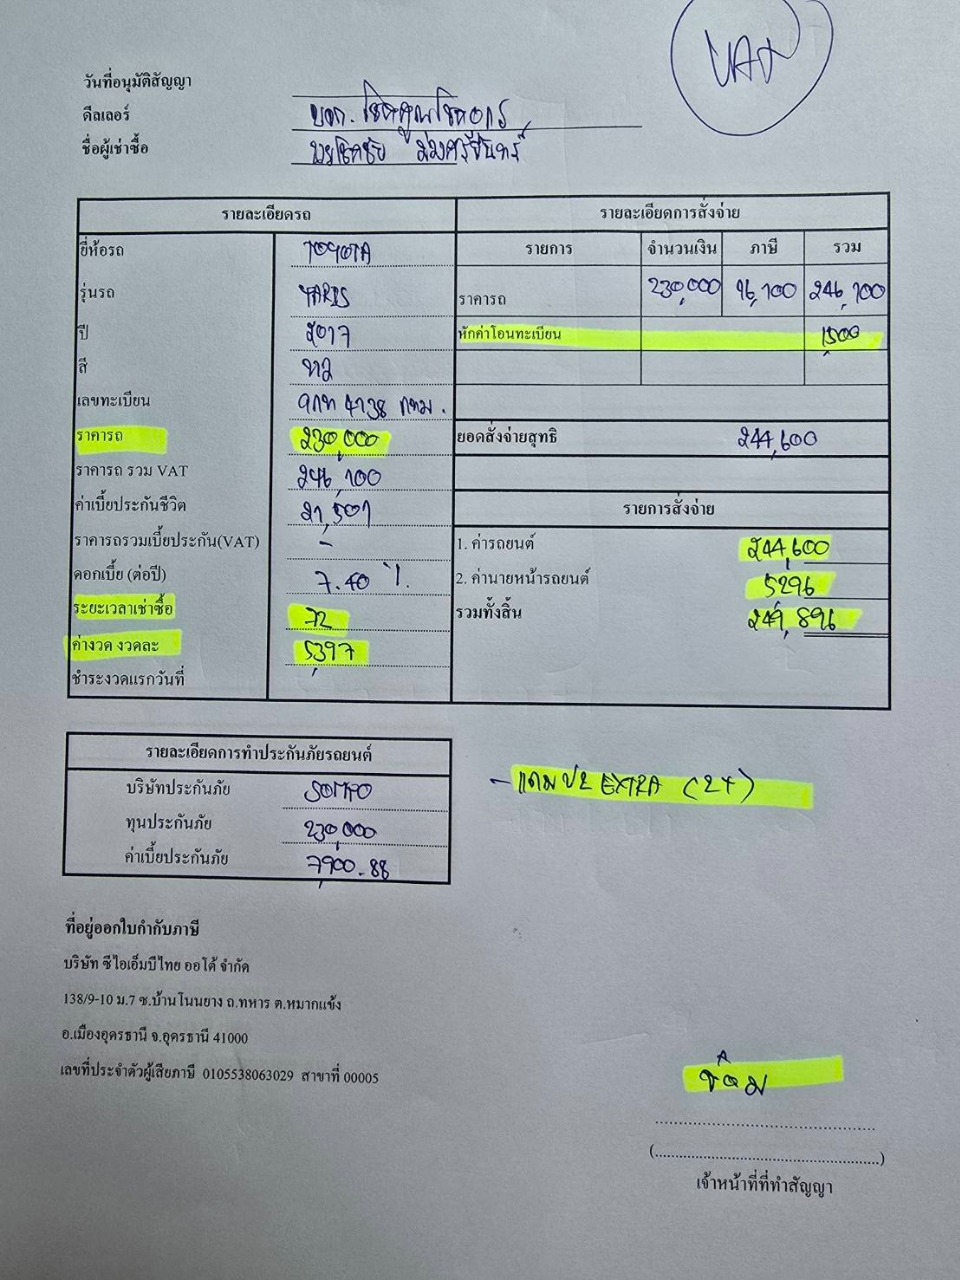 VAT
วันที่อนุมัติสัญญา
ดีลเลอร์ บจก. โชคคูณโชคถาวร
ชื่อผู้เช่าซื้อ นายโชคชัย
รายละเอียดรถ
ยี่ห้อรถ TOYOTA
รุ่นรถ YARIS
ปี 2017
สี
เลขทะเบียน 4738 กทม.
ราคารถ 230,000
ราคารถ รวม VAT 246,100
ค่าเบี้ยประกันชีวิต 21,501
ราคารถรวมเบี้ยประกัน(VAT) -
ดอกเบี้ย (ต่อปี) 7.40 %
ระยะเวลาเช่าซื้อ 72
ค่างวด งวดละ 5,397
ชำระงวดแรกวันที่
รายละเอียดการสั่งจ่าย
รายการ จำนวนเงิน ภาษี รวม
ราคารถ 230,000 16,100 246,100
หักค่าโอนทะเบียน 1,500
ยอดสั่งจ่ายสุทธิ 244,600
รายการสั่งจ่าย
1. ค่ารถยนต์ 244,600
2. ค่านายหน้ารถยนต์ 5296
รวมทั้งสิ้น 249,896
รายละเอียดการทำประกันภัยรถยนต์
บริษัทประกันภัย SOMPO
ทุนประกันภัย 230,000
ค่าเบี้ยประกันภัย 7,900.88
- แถม ป2 EXTRA (2+)
ที่อยู่ออกใบกำกับภาษี
บริษัท ซีไอเอ็มบีไทย ออโต้ จำกัด
138/9-10 ม.7 ซ.บ้านโนนยาง ถ.ทหาร ต.หมากแข้ง
อ.เมืองอุดรธานี จ.อุดรธานี 41000
เลขที่ประจำตัวผู้เสียภาษี 0105538063029 สาขาที่ 00005
(..................................................)
เจ้าหน้าที่ที่ทำสัญญา